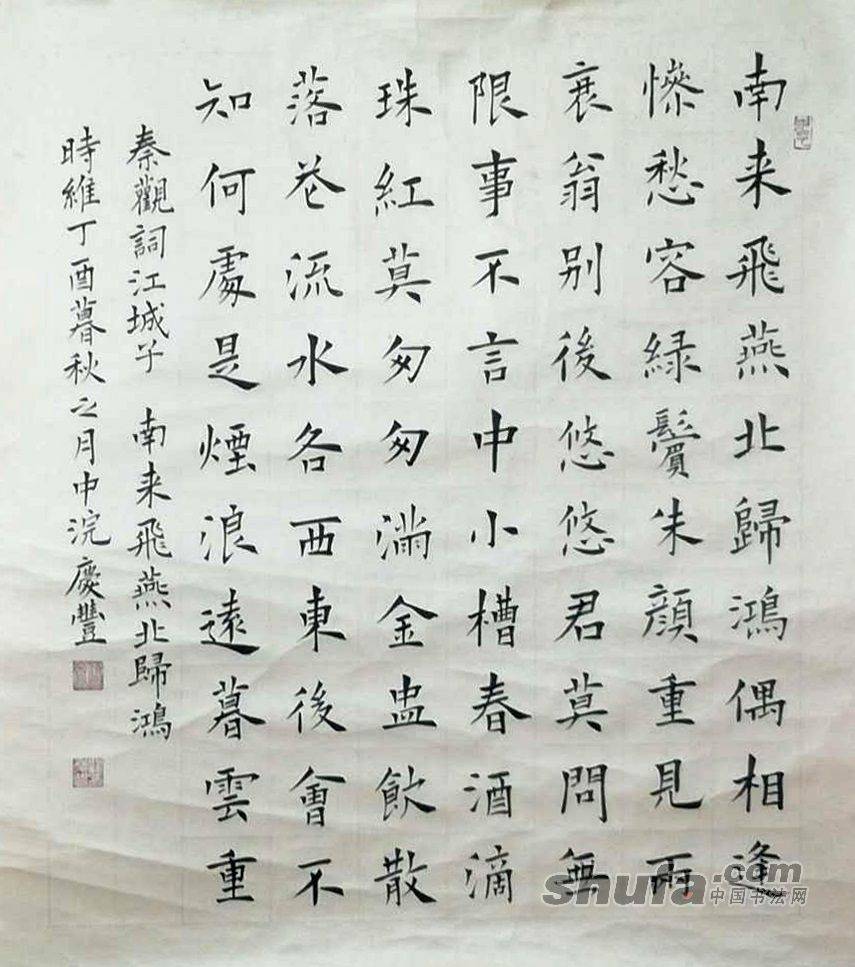 南来飛燕北歸鴻偶相逢
慘愁容緑鬢朱顔重見兩
衰翁别後悠悠君莫問無
限事不言中小槽春酒滴
珠紅莫匆匆滿金盅飲散
落花流水各西東後會不
知何處是煙浪遠暮雲重
秦觀詞江城子 南来飛燕北歸鴻
時維丁酉暮秋之月中浣慶豐
shufa.com
中国书法网